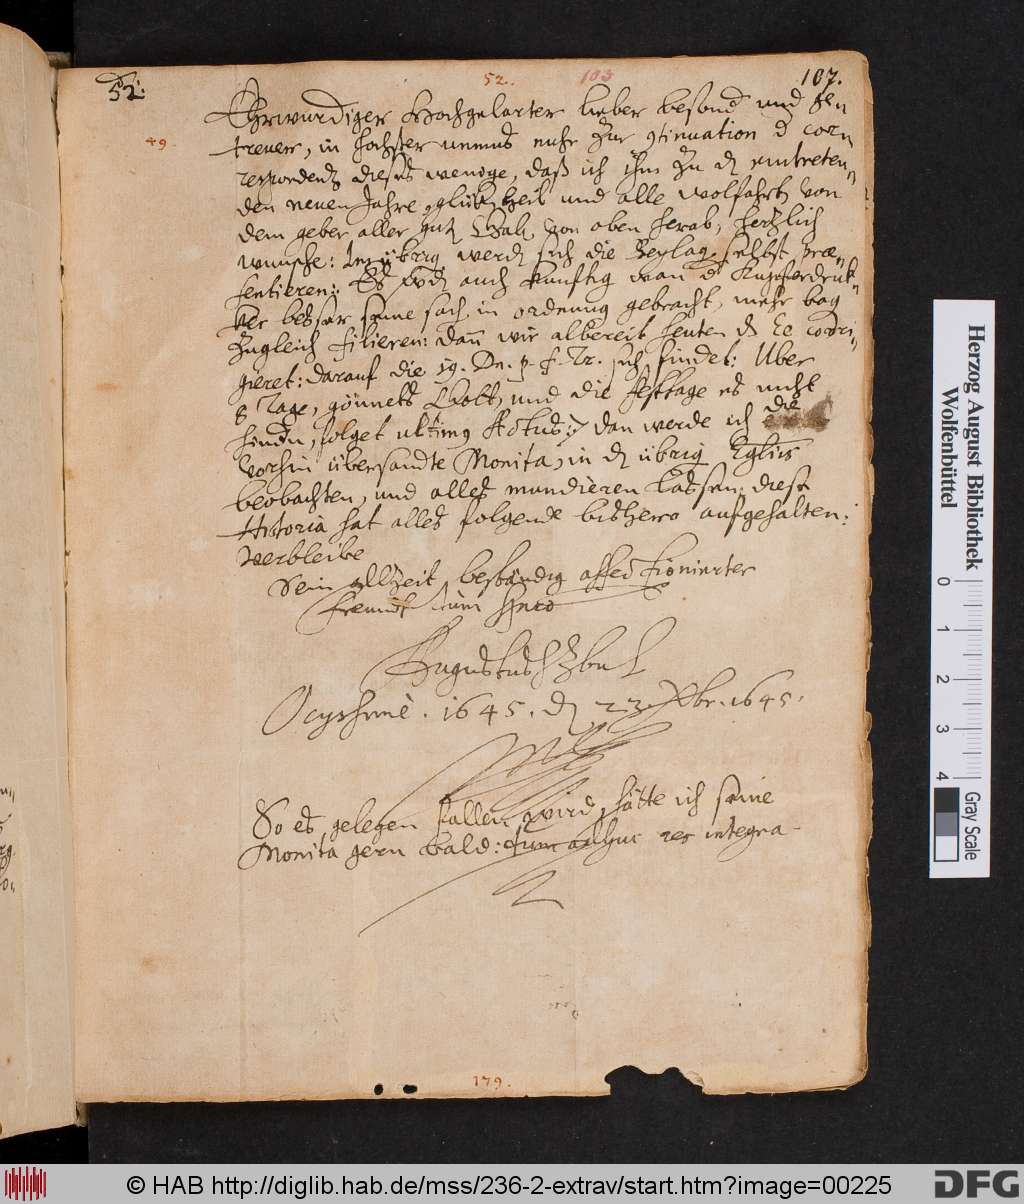 52. 52. 103 107.
49.
Ehrwürdiger Hochgelarter lieber besond und
treuer, in höchster meinung mehr zur continuation d corr
respondentz dieses wenige, daß ich ihm zu d eintreten
den neuen Jahre glück, heil und alle wolfahrt von
dem geber aller gut Gab, von oben herab, hertzlich
wunsche: Im übrig werd sich die Beylag selbst præ
sentieren: Es wird auch kunftig wan d Kupferdruk
ker besser seine sach in ordnung gebracht, mehr bog
zugleich: dan wir albereit heuten d Ee corri
gieret: darauf die 19. sich findet: Uber
8 Tage, gönnets Gott, und die festtage es nicht
hindn, folget ultimus Actus: dan werde ich die
vorhin übersandte Monita, in d übrig
beobachten, und alles mundieren lassen: diese
Historia hat alles folgende bishero aufgehalten:
verbleibe
Sein allzeit beständig affectionierter
freundt
Augustus HzBuL
1645. d 23. Xbr. 1645.
So es gelegen fallen wird, hätte ich seine
Monita gern bald: dum adhuc res integra.
179.
Herzog August Bibliothek
Wolfenbüttel
0 1 2 3 4
Gray Scale
© HAB http://diglib.hab.de/mss/236-2-extrav/start.htm?image=00225
DFG